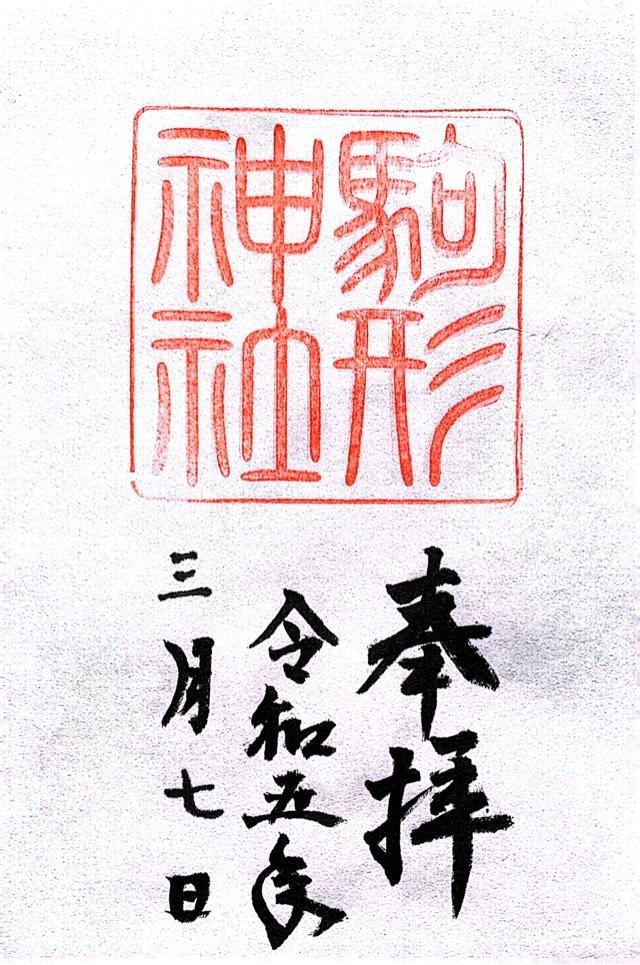 駒形
神社
奉拝
令和五年
三月七日